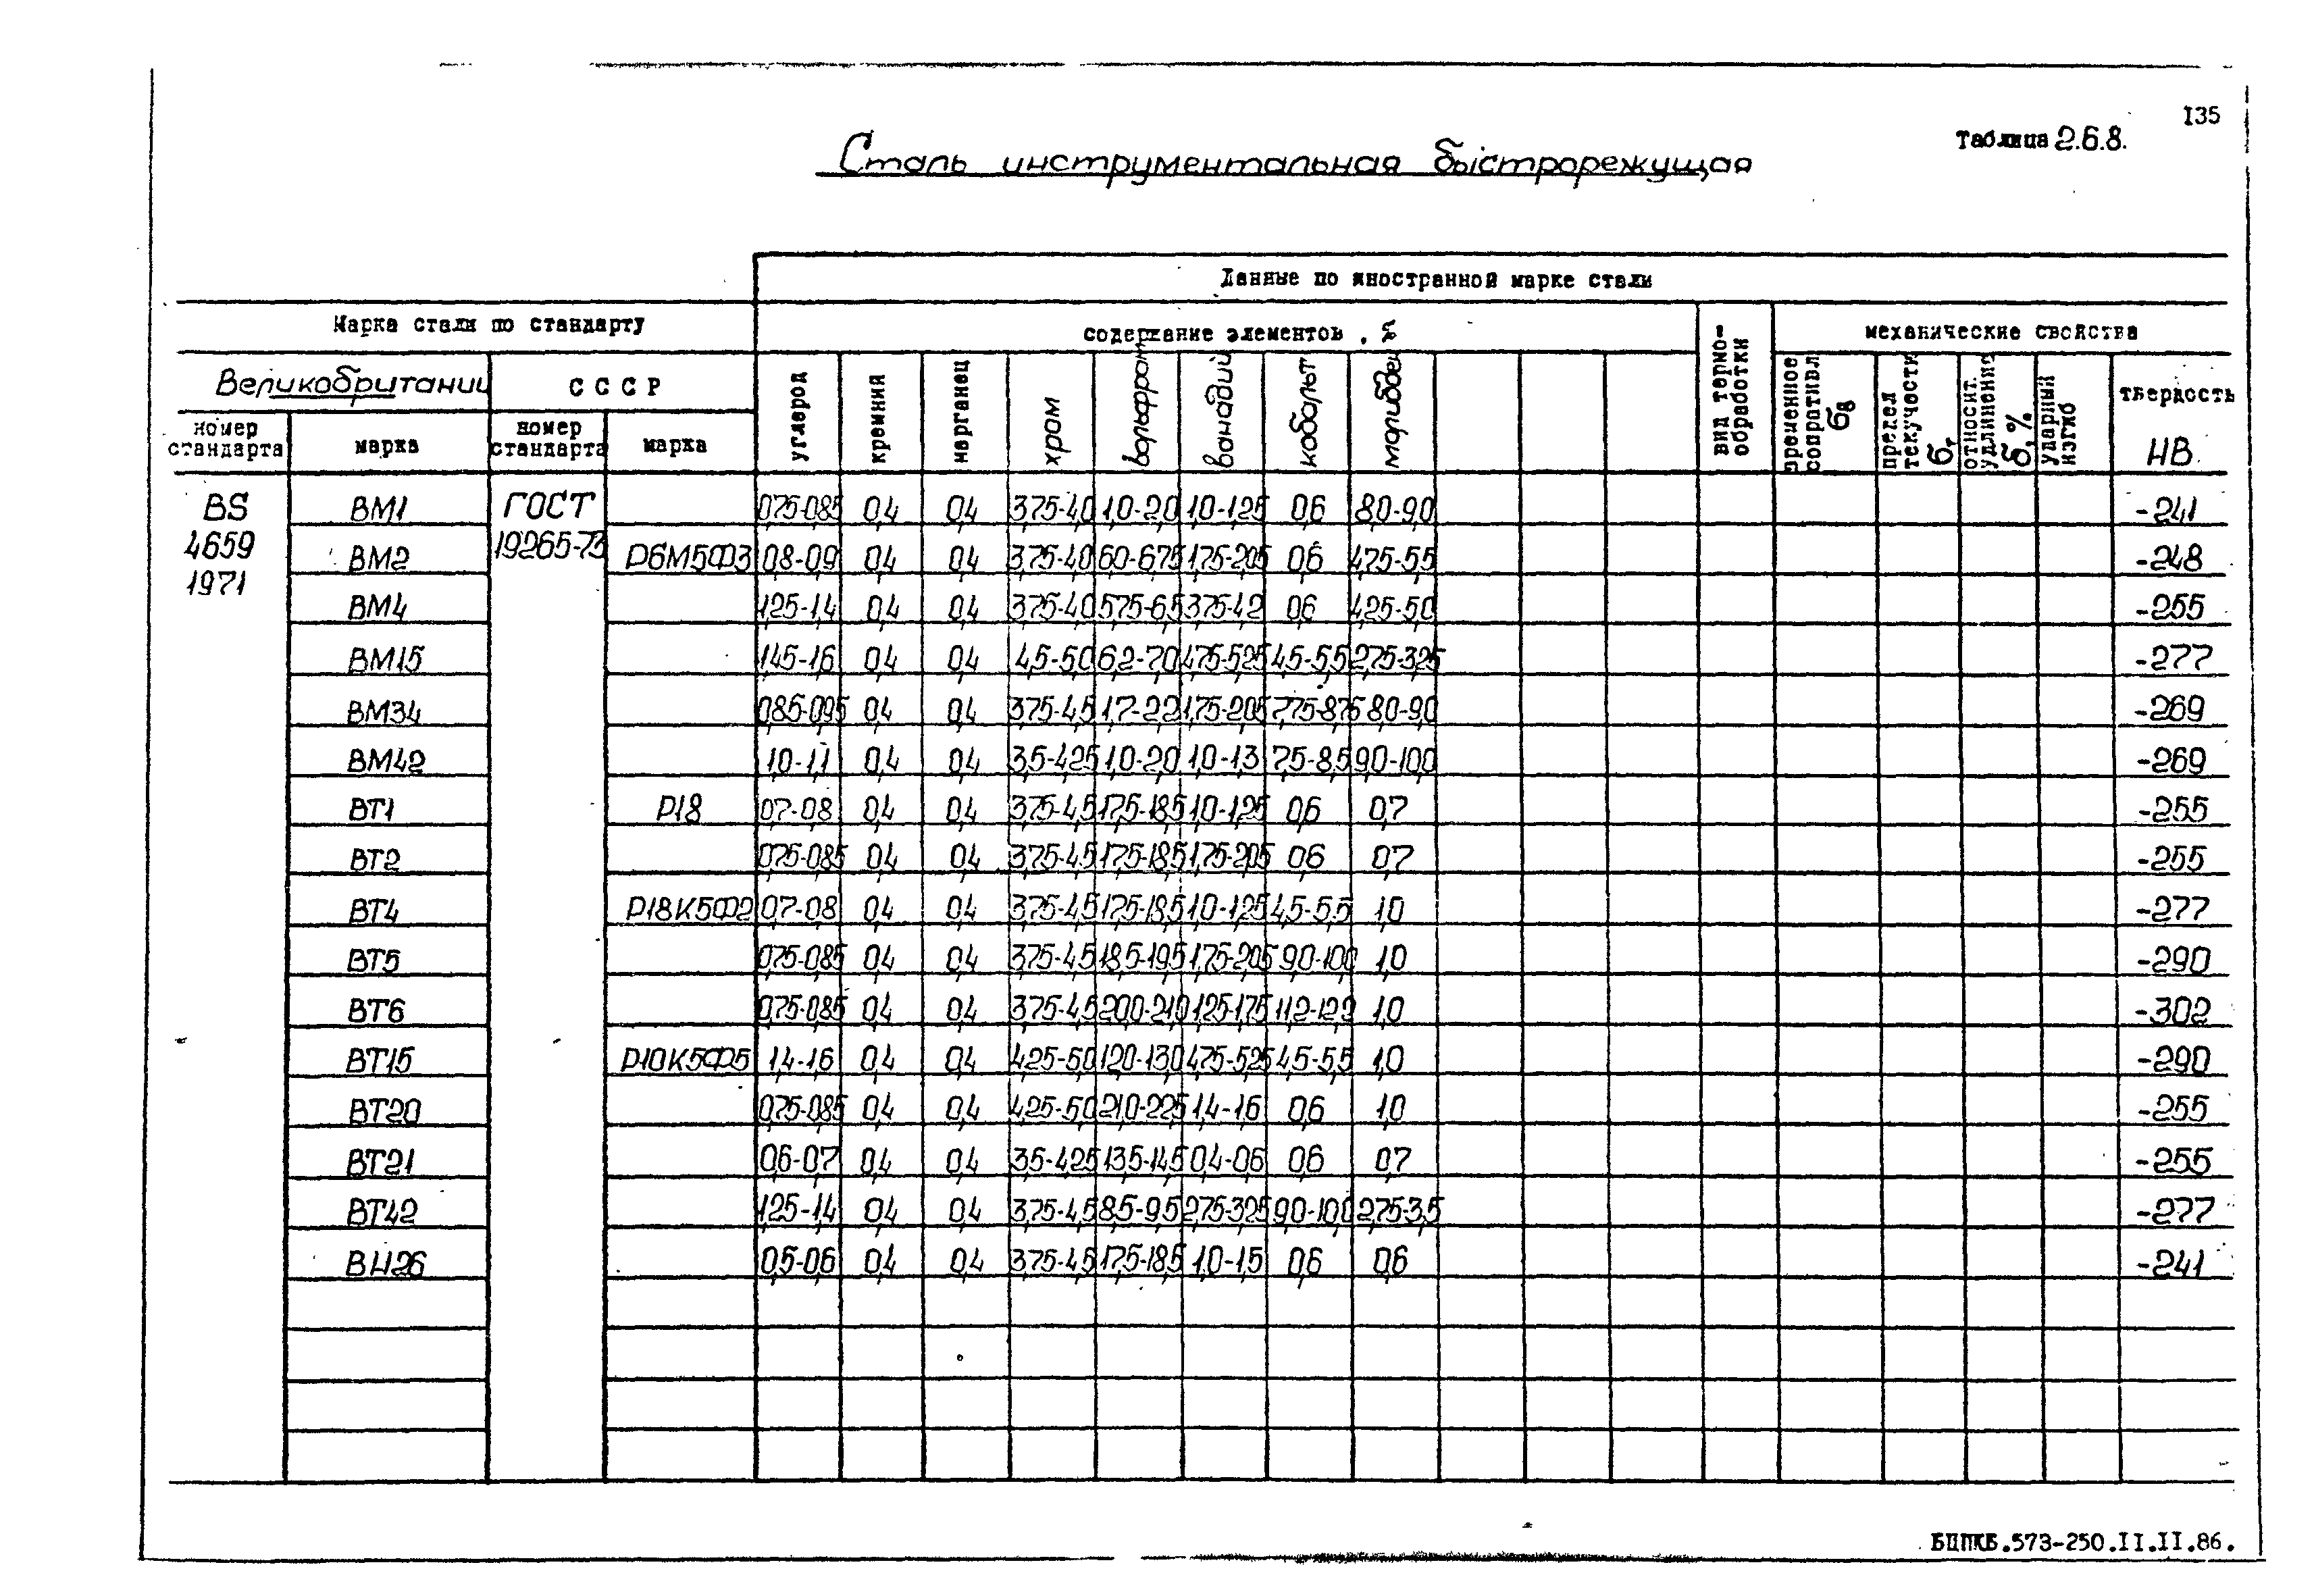 135
Таблица 2.6.8.
Сталь инструментальная быстрорежущая
Данные по иностранной марке стали
Марка стали по стандарту
содержание элементов, %
вид термо-обработки
механические свойства
Великобритании
СССР
углерод
кремний
марганец
хром
вольфрам
ванадий
кобальт
молибден
временное сопротивл. σв
предел текучести σт
относит. удлинение δ, %
ударный изгиб
твердость НВ
номер стандарта
марка
номер стандарта
марка
BS 4659 1971
ГОСТ 19265-73
BM1 0,75-0,85 0,4 0,4 3,75-4,0 1,0-2,0 1,0-1,25 0,6 8,0-9,0 -241
BM2 Р6М5Ф3 0,8-0,9 0,4 0,4 3,75-4,0 6,0-6,75 1,75-2,05 0,6 4,75-5,5 -248
BM4 1,25-1,4 0,4 0,4 3,75-4,0 5,75-6,5 3,75-4,2 0,6 4,25-5,0 -255
BM15 1,45-1,6 0,4 0,4 4,5-5,0 6,2-7,0 4,75-5,25 4,5-5,5 2,75-3,25 -277
BM34 0,85-0,95 0,4 0,4 3,75-4,5 1,7-2,2 1,75-2,05 7,75-8,75 8,0-9,0 -269
BM42 1,0-1,1 0,4 0,4 3,5-4,25 1,0-2,0 1,0-1,3 7,5-8,5 9,0-10,0 -269
BT1 Р18 0,7-0,8 0,4 0,4 3,75-4,5 17,5-18,5 1,0-1,25 0,6 0,7 -255
BT2 0,75-0,85 0,4 0,4 3,75-4,5 17,5-18,5 1,75-2,05 0,6 0,7 -255
BT4 Р18К5Ф2 0,7-0,8 0,4 0,4 3,75-4,5 17,5-18,5 1,0-1,25 4,5-5,5 1,0 -277
BT5 0,75-0,85 0,4 0,4 3,75-4,5 18,5-19,5 1,75-2,05 9,0-10,0 1,0 -290
BT6 0,75-0,85 0,4 0,4 3,75-4,5 20,0-21,0 1,25-1,75 11,2-12,2 1,0 -302
BT15 Р10К5Ф5 1,4-1,6 0,4 0,4 4,25-5,0 12,0-13,0 4,75-5,25 4,5-5,5 1,0 -290
BT20 0,75-0,85 0,4 0,4 4,25-5,0 21,0-22,5 1,4-1,6 0,6 1,0 -255
BT21 0,6-0,7 0,4 0,4 3,5-4,25 13,5-14,5 0,4-0,6 0,6 0,7 -255
BT42 1,25-1,4 0,4 0,4 3,75-4,5 8,5-9,5 2,75-3,25 9,0-10,0 2,75-3,5 -277
BH26 0,5-0,6 0,4 0,4 3,75-4,5 17,5-18,5 1,0-1,5 0,6 0,6 -241
БЦПКБ.573-250.II.II.86.